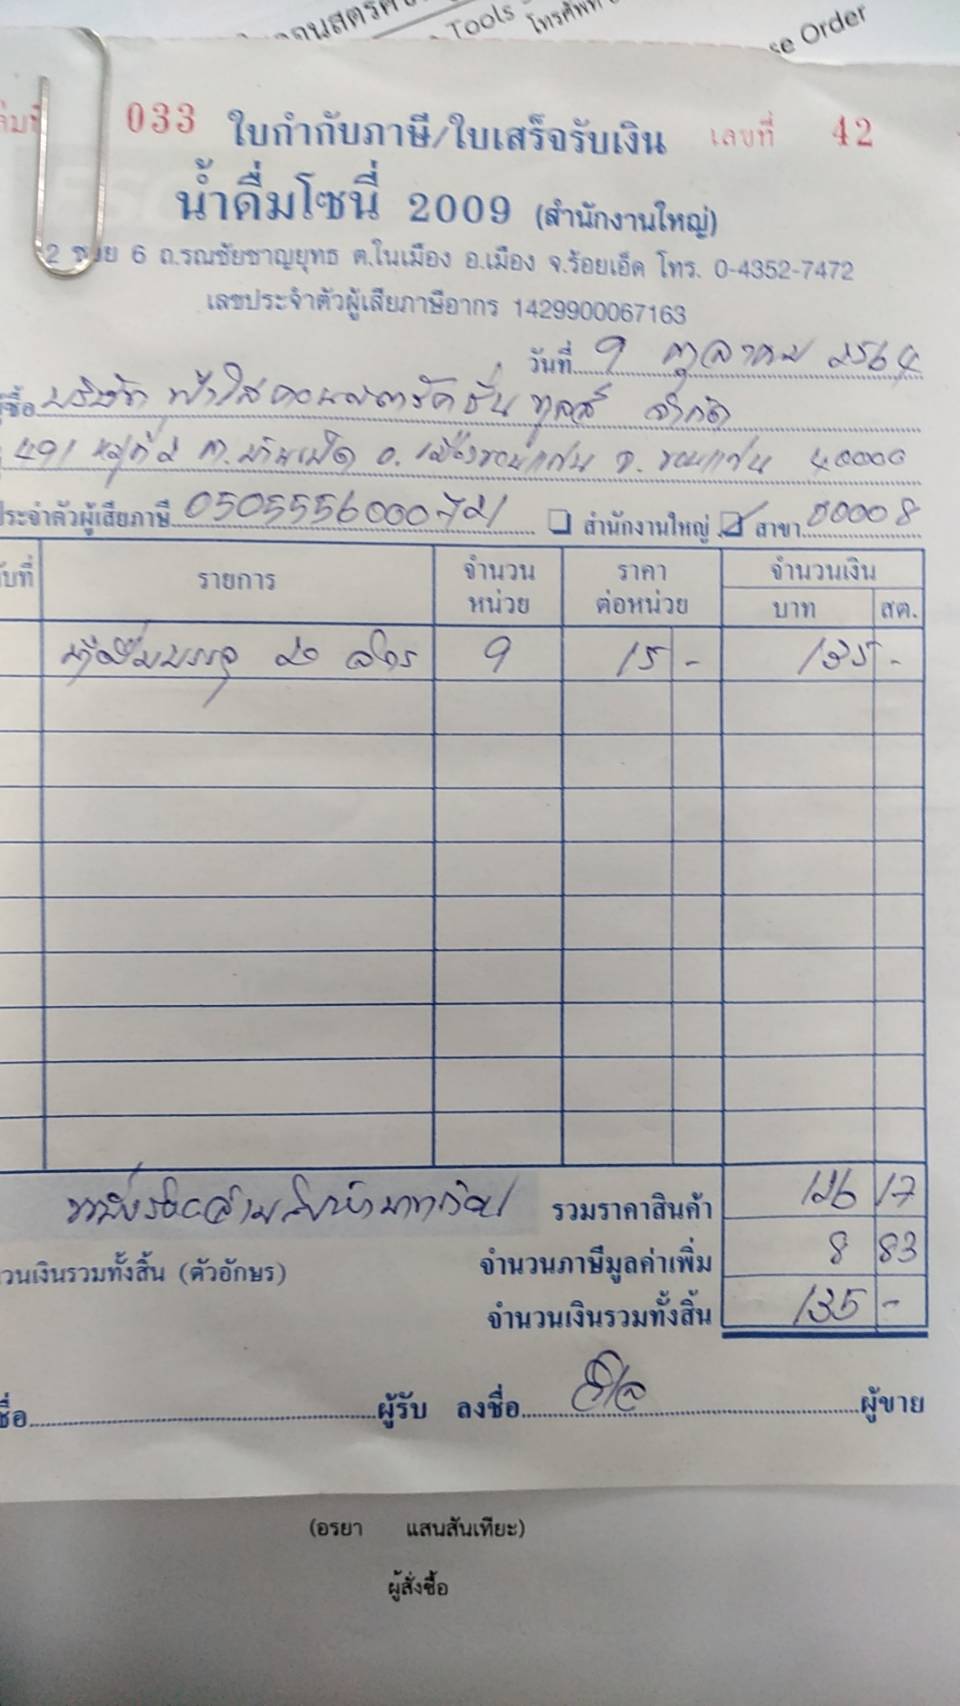 Tools โทรศัพท์
se Order
033 ใบกำกับภาษี/ใบเสร็จรับเงิน เลขที่ 42
น้ำดื่มโซนี่ 2009 (สำนักงานใหญ่)
2 ซอย 6 ถ.รณชัยชาญยุทธ ต.ในเมือง อ.เมือง จ.ร้อยเอ็ด โทร. 0-4352-7472
เลขประจำตัวผู้เสียภาษีอากร 1429900067163
วันที่ 9 ตุลาคม 2564
ชื่อ บริษัท ฟ้าใสคอนสตรัคชั่น ทูลส์ จำกัด
491 หมู่ที่ 2 ต.บ้านเป็ด อ.เมืองขอนแก่น จ.ขอนแก่น 40000
ประจำตัวผู้เสียภาษี 0505556000721 สำนักงานใหญ่ สาขา 00008
ับที่ รายการ จำนวน หน่วย ราคา ต่อหน่วย จำนวนเงิน
บาท สต.
น้ำดื่มบรรจุ 20 ลิตร 9 15 - 135 -
หนึ่งร้อยสามสิบห้าบาทถ้วน รวมราคาสินค้า 126 17
วนเงินรวมทั้งสิ้น (ตัวอักษร) จำนวนภาษีมูลค่าเพิ่ม 8 83
จำนวนเงินรวมทั้งสิ้น 135 -
ชื่อ ผู้รับ ลงชื่อ ผู้ขาย
(อรยา แสนสันเทียะ)
ผู้สั่งซื้อ